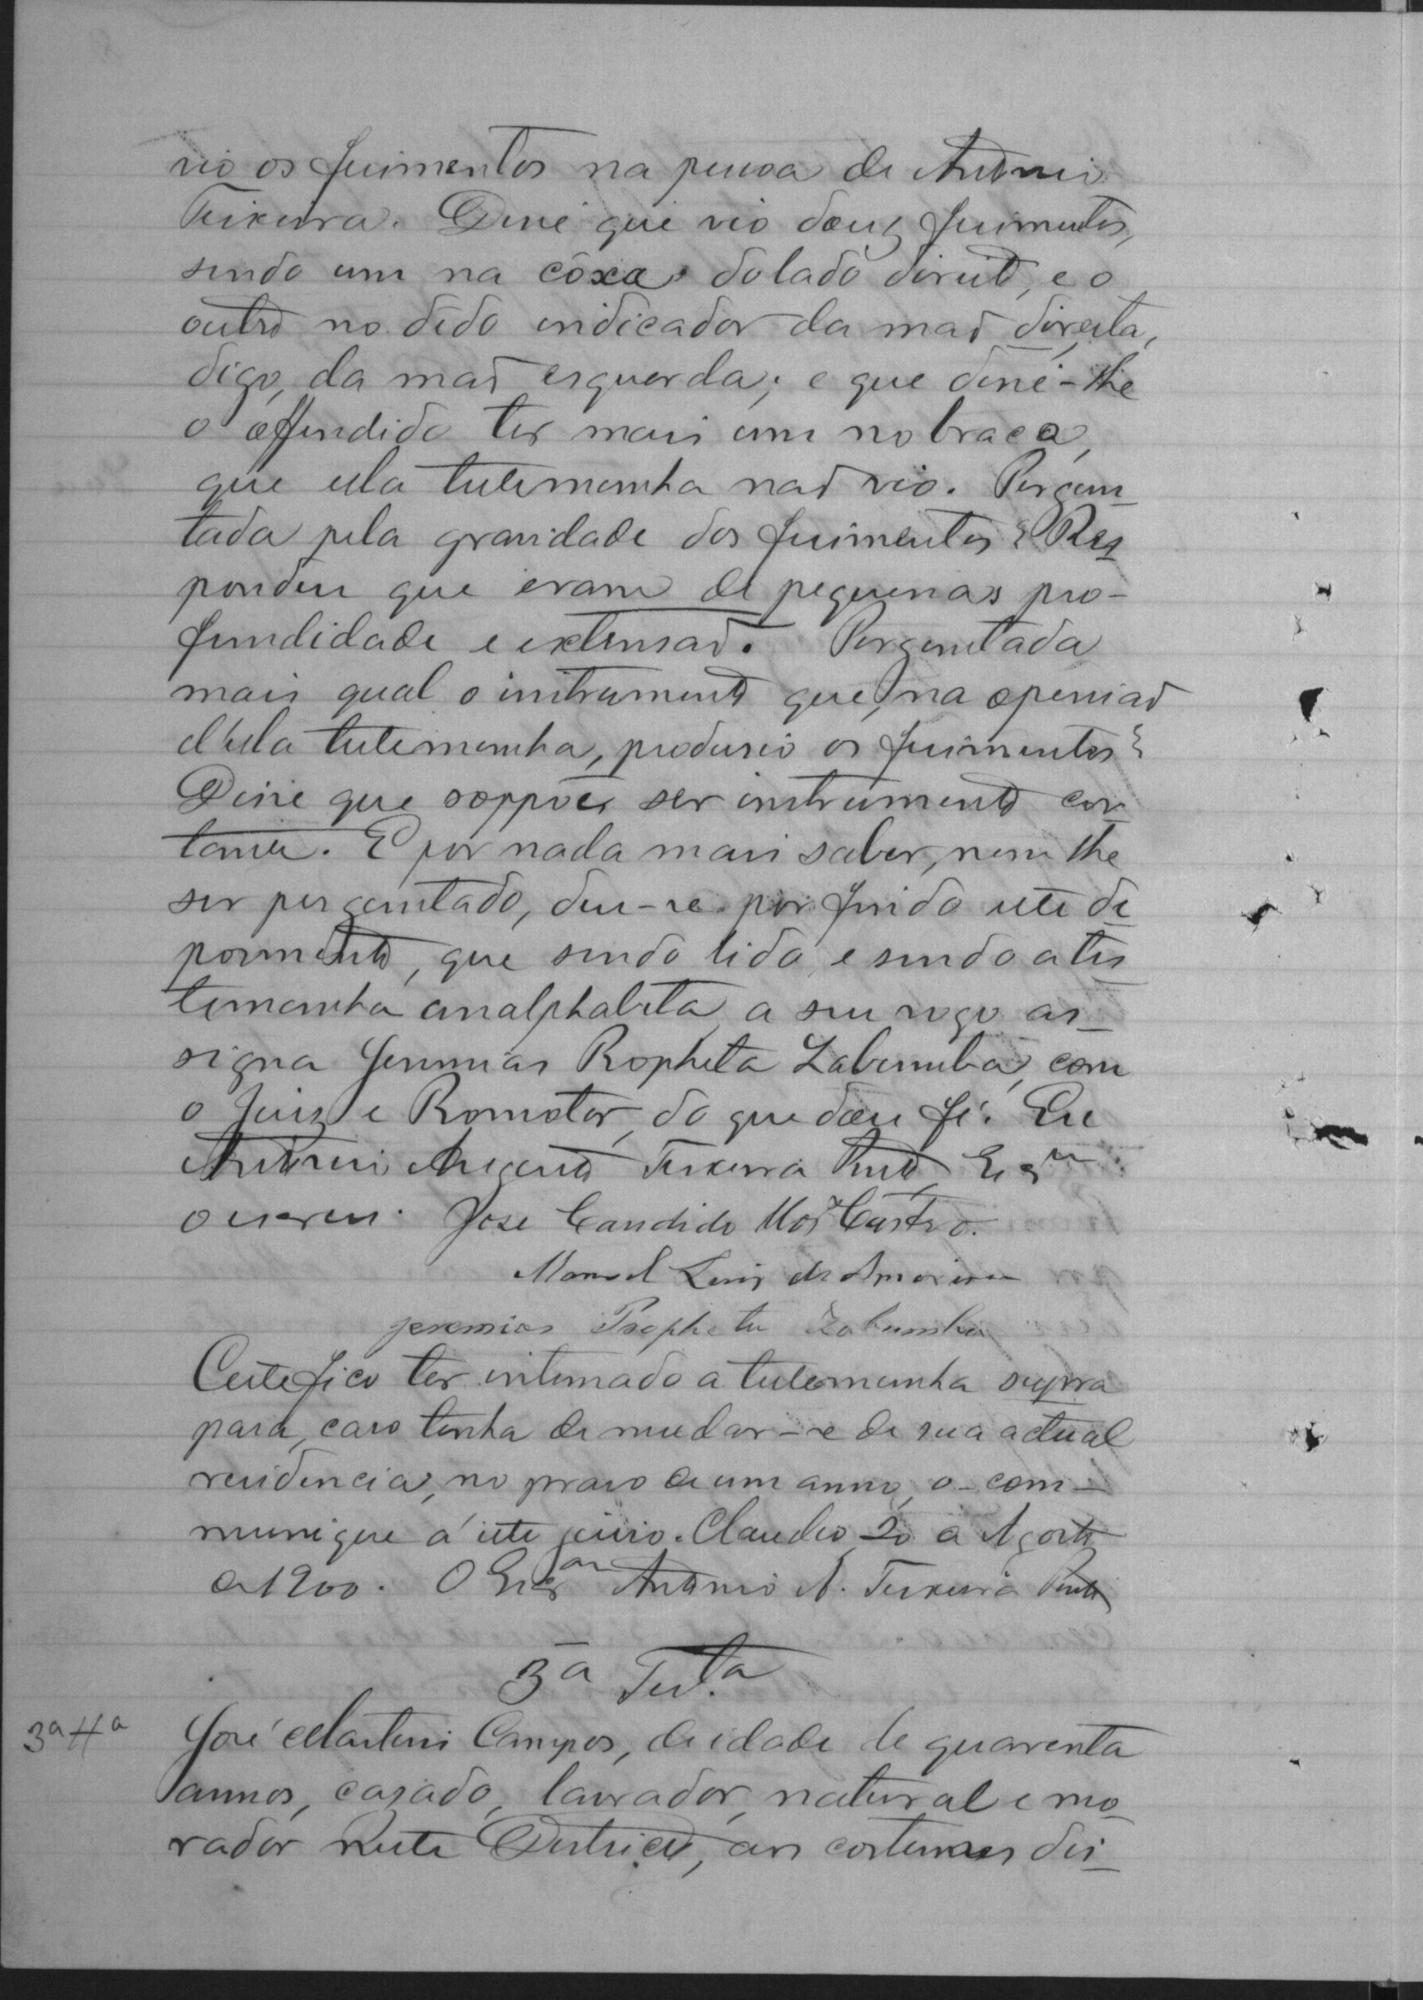 vio os ferimentos na pessoa de Antonio
Teixeira. Disse que vio dous ferimentos,
sendo um na côxa do lado direito, e o
outro no dedo indicador da mão direita,
digo, da mão esquerda; e que disse-lhe
o offendido ter mais um no braço,
que ella testemunha não vio. Pergun-
tada pela gravidade dos ferimentos? Res
pondeu que eram de pequenas pro-
fundidade e extensão. Perguntada
mais qual o instrumento que, na openião
d'ella testemunha, produsio os ferimentos?
Disse que soppoẽs ser instrumento cor
tante. E por nada mais saber, nem lhe
ser perguntado, deu-se por findo este de
poimento, que sendo lido, e sendo a tes
temunha analphabeta, a seu rogo as-
signa Jeremias Propheta Zabumba, com
o Juiz e Promotor, do que dou fé. Eu
Antonio Augusto Teixeira Pinto, Escam
o escrevi. Jose Candido Mor Castro.
Manoel Luiz de Amorim
Jeremias Propheta Zabumba
Certefico ter intimado a testemunha supra
para, caso tenha de mudar-se de sua actual
residencia, no praso de um anno, o com-
munique á este juiso. Claudio 20 de Agosto
de 1900. O Escam Antonio A. Teixeira Pinto
3a Testa
3a Ha José Martins Campos, de idade de quarenta
annos, casado, lavrador, natural e mo
rador neste Districto, aos costumes dis-